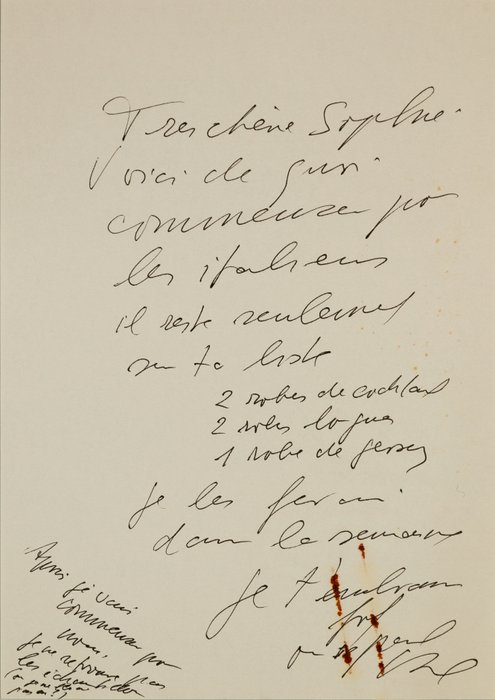 Tres chère Sophie.
Voici de quoi
commencer par
les italiens
il reste seulement
sur ta liste
2 robes de cocktail
2 robes longues
1 robe de jersey
je les ferai
dans la semaine
je t'embrasse
fort
on se
Aussi
je vais
commencer par
nous,
je ne retrouve pas
les échantillons